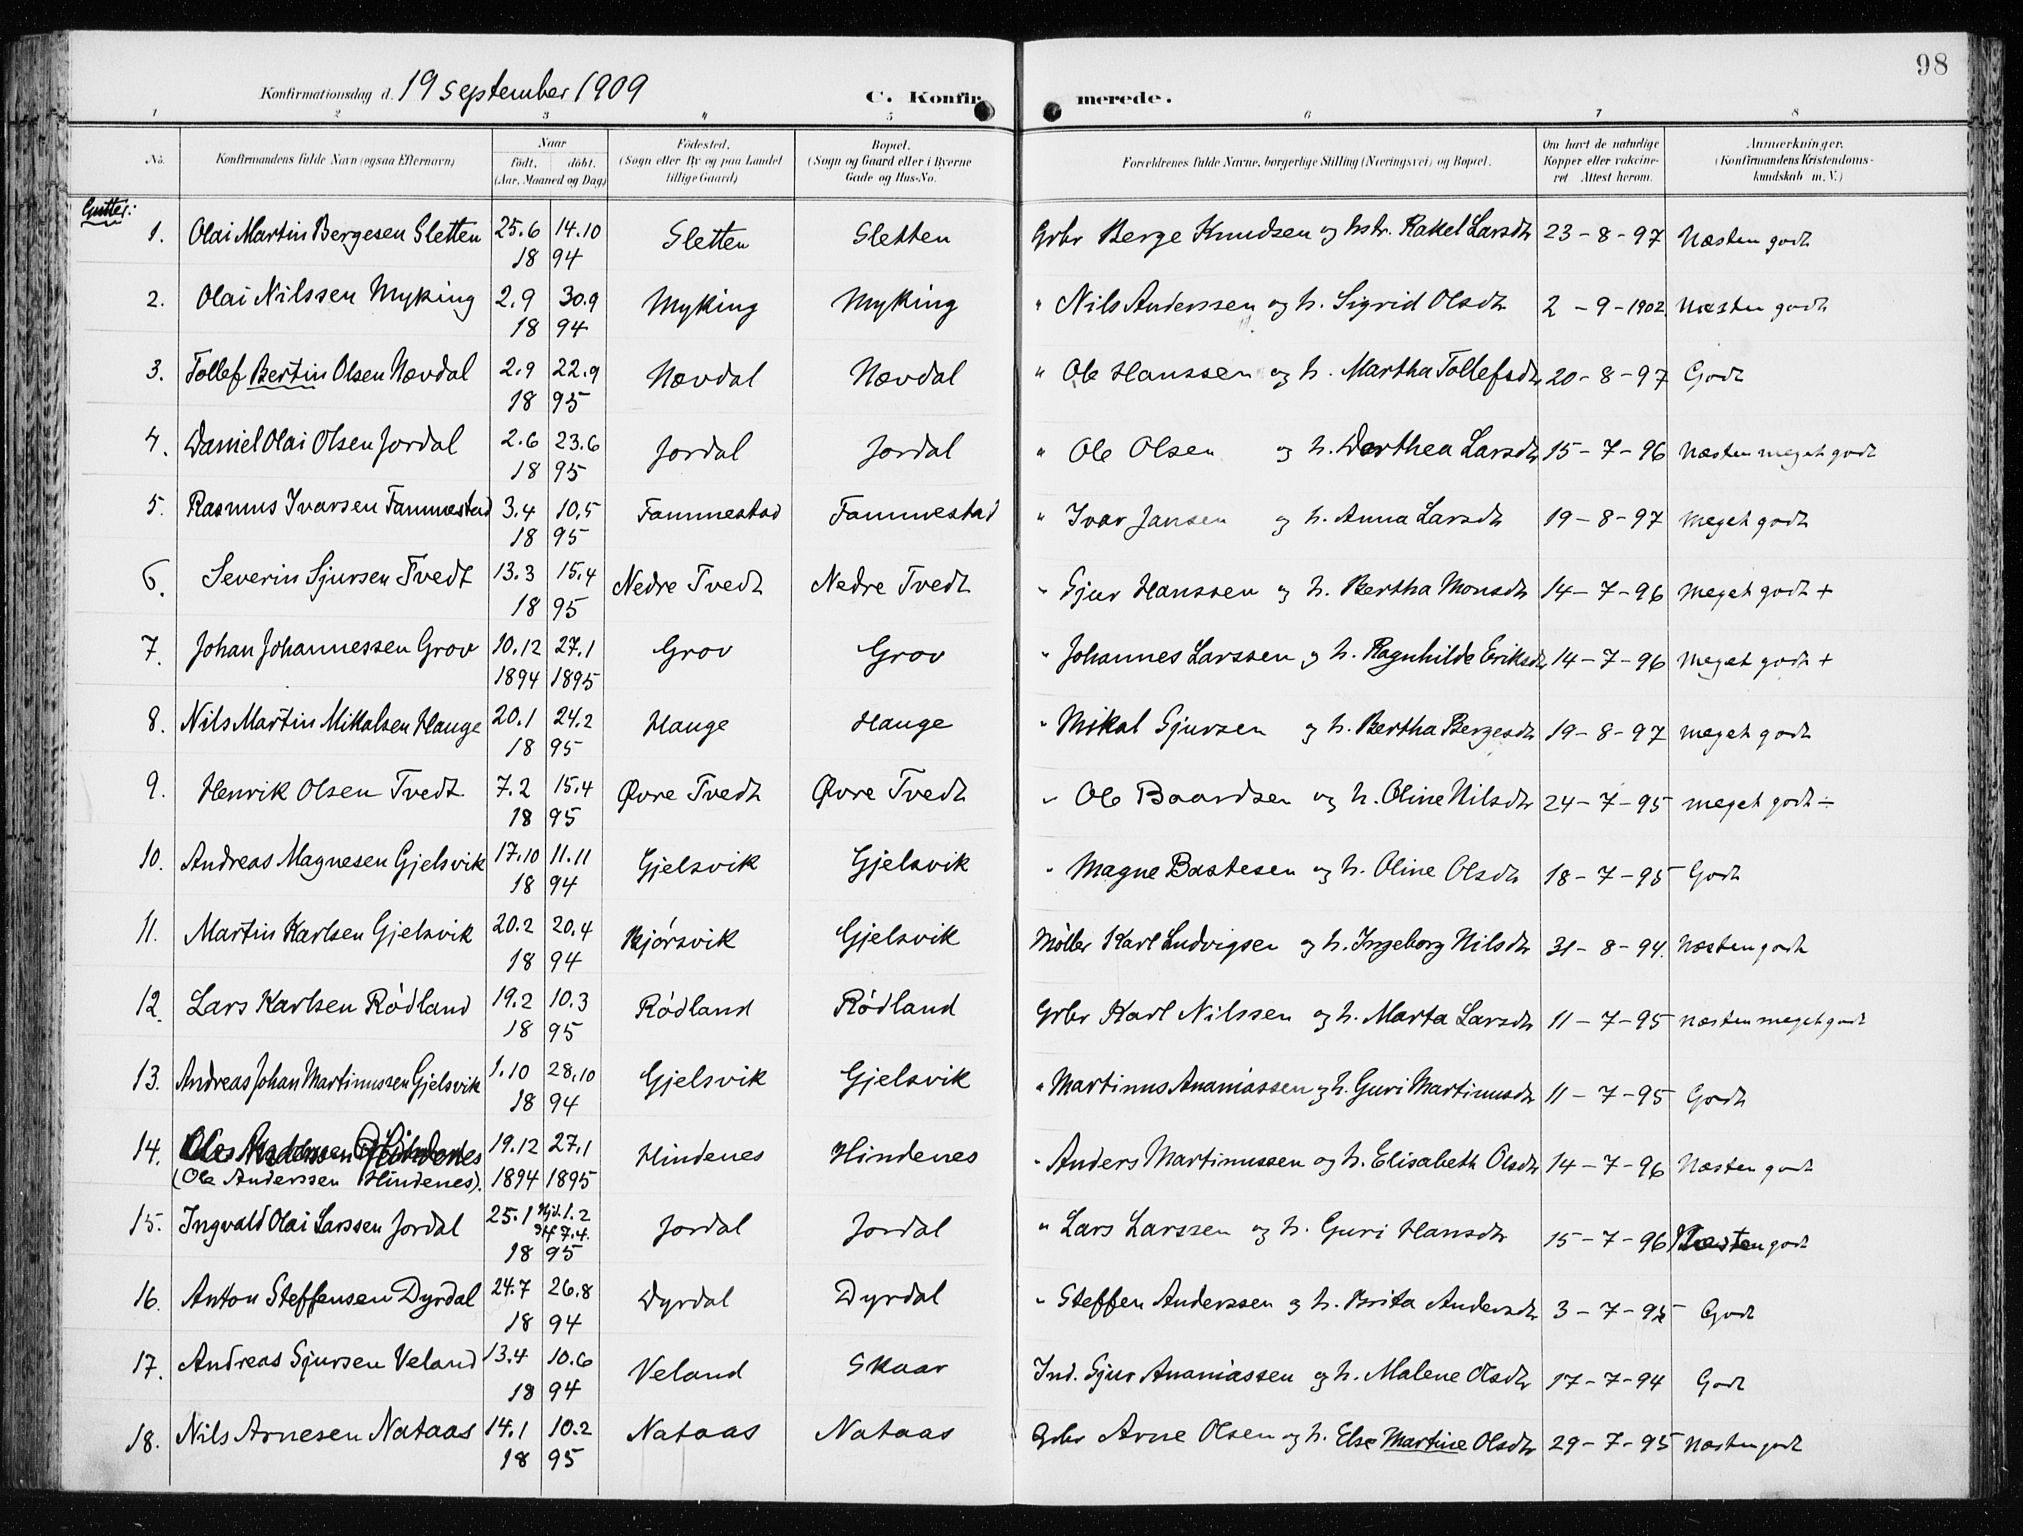 98
Konfirmationsdag d. 19 september 1909 C. Konfirmerede.
1 2 3 4 5 6 7 8
No. Konfirmandens fulde Navn (ogsaa Efternavn) Naar født. døbt. (Aar, Maaned og Dag) Fødested. (Sogn eller By og paa Landet tillige Gaard) Bopæl. (Sogn og Gaard eller i Byerne Gade og Hus-No. Forældrenes fulde Navne, borgerlige Stilling (Næringsvei) og Bopæl. Om havt de naturlige Kopper eller vakcineret Attest herom. Anmærkninger. (Konfirmandens Kristendomskundskab m. V.)
Gutter:
1. Olai Martin Bergesen Sletten 25.6 14.10 Sletten Sletten Grbr Berge Knudsen og hstr. Rakel Larsdtr 23-8-97 Næsten godt
18 94
2. Olai Nilssen Myking 2.9 30.9 Myking Myking " Nils Anderssen og h. Sigrid Olsdtr 2-9-1902 Næsten godt
18 94
3. Tollef Bertin Olsen Nævdal 2.9 22.9 Nævdal Nævdal " Ole Hanssen og h. Martha Tollefsdtr 20-8-97 Godt
18 95
4. Daniel Olai Olsen Jordal 2.6 23.6 Jordal Jordal " Ole Olsen og h. Dorthea Larsdtr 15-7-96 Næsten meget godt
18 95
5. Rasmus Ivarsen Fammestad 3.4 10.5 Fammestad Fammestad " Ivar Jansen og h. Anna Larsdtr 19-8-97 meget godt
18 95
6. Severin Sjursen Tvedt 13.3 15.4 Nedre Tvedt Nedre Tvedt " Sjur Hanssen og h. Bertha Monsdtr 14-7-96 meget godt +
18 95
7. Johan Johannessen Grov 10.12 27.1 Grov Grov " Johannes Larssen og h. Ragnhilde Eriksdtr 14-7-96 meget godt +
1894 1895
8. Nils Martin Mikalsen Hauge 20.1 24.2 Hauge Hauge " Mikal Sjursen og h. Bertha Bergesdtr 19-8-97 meget godt
18 95
9. Henrik Olsen Tvedt 7.2 15.4 Øvre Tvedt Øvre Tvedt " Ole Baardsen og h. Oline Nilsdtr 24-7-95 meget godt ÷
18 95
10. Andreas Magnesen Gjelsvik 17.10 11.11 Gjelsvik Gjelsvik " Magne Bastesen og h. Oline Olsdtr 18-7-95 Godt
18 94
11. Martin Karlsen Gjelsvik 20.2 20.4 Bjørsvik Gjelsvik Møller Karl Ludvigsen og h. Ingeborg Nilsdtr 31-8-94. Næsten godt
18 94
12. Lars Karlsen Rødland 19.2 10.3 Rødland Rødland Grbr Karl Nilssen og h. Marta Larsdtr 11-7-95 næsten meget godt
18 95
13. Andreas Johan Martinussen Gjelsvik 1.10 28.10 Gjelsvik Gjelsvik " Martinus Ananiassen og h. Guri Martinusdtr 11-7-95 Godt
18 94
14. 19.12 27.1 Hindenes Hindenes " Anders Martinussen og h. Elisabeth Olsdtr 14-7-96 Næsten godt
(Ole Anderssen Hindenes). 1894 1895
15. Ingvald Olai Larssen Jordal 25.1 Hjd. 1.2 Jordal Jordal " Lars Larssen og h. Guri Hansdtr 15-7-96 Næsten godt
Stf 7.4.
18 95
16. Anton Steffensen Dyrdal 24.7 26.8 Dyrdal Dyrdal " Steffen Anderssen og h. Brita Andersdtr 3-7-95 Godt
18 94
17. Andreas Sjursen Veland 13.4 10.6 Veland Skaar Ind. Sjur Ananiassen og h. Malene Olsdtr 17-7-94 Godt
18 94
18. Nils Arnesen Nataas 14.1 10.2 Nataas Nataas Grbr Arne Olsen og h. Else Martine Olsdtr 29-7-95 Næsten godt
18 95